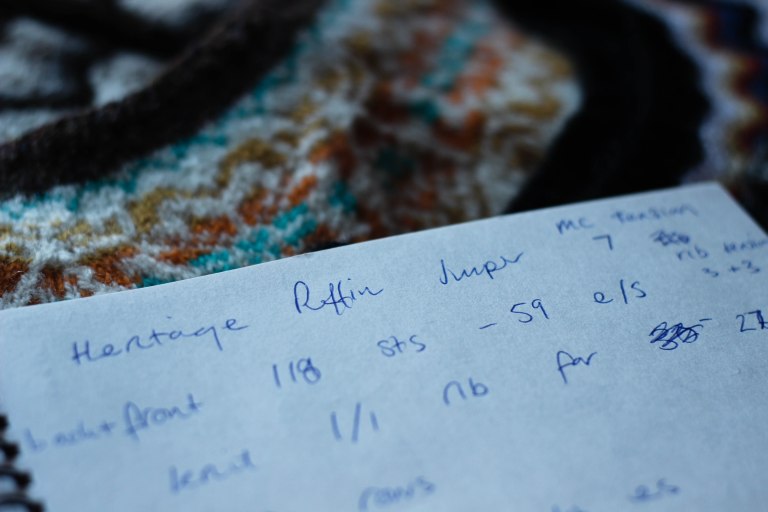 MC tension
Heritage Puffin Jumper 7 rib tension
3+3
back + front 118 sts - 59 e/s
knit 1/1 rib for 27
rows
es